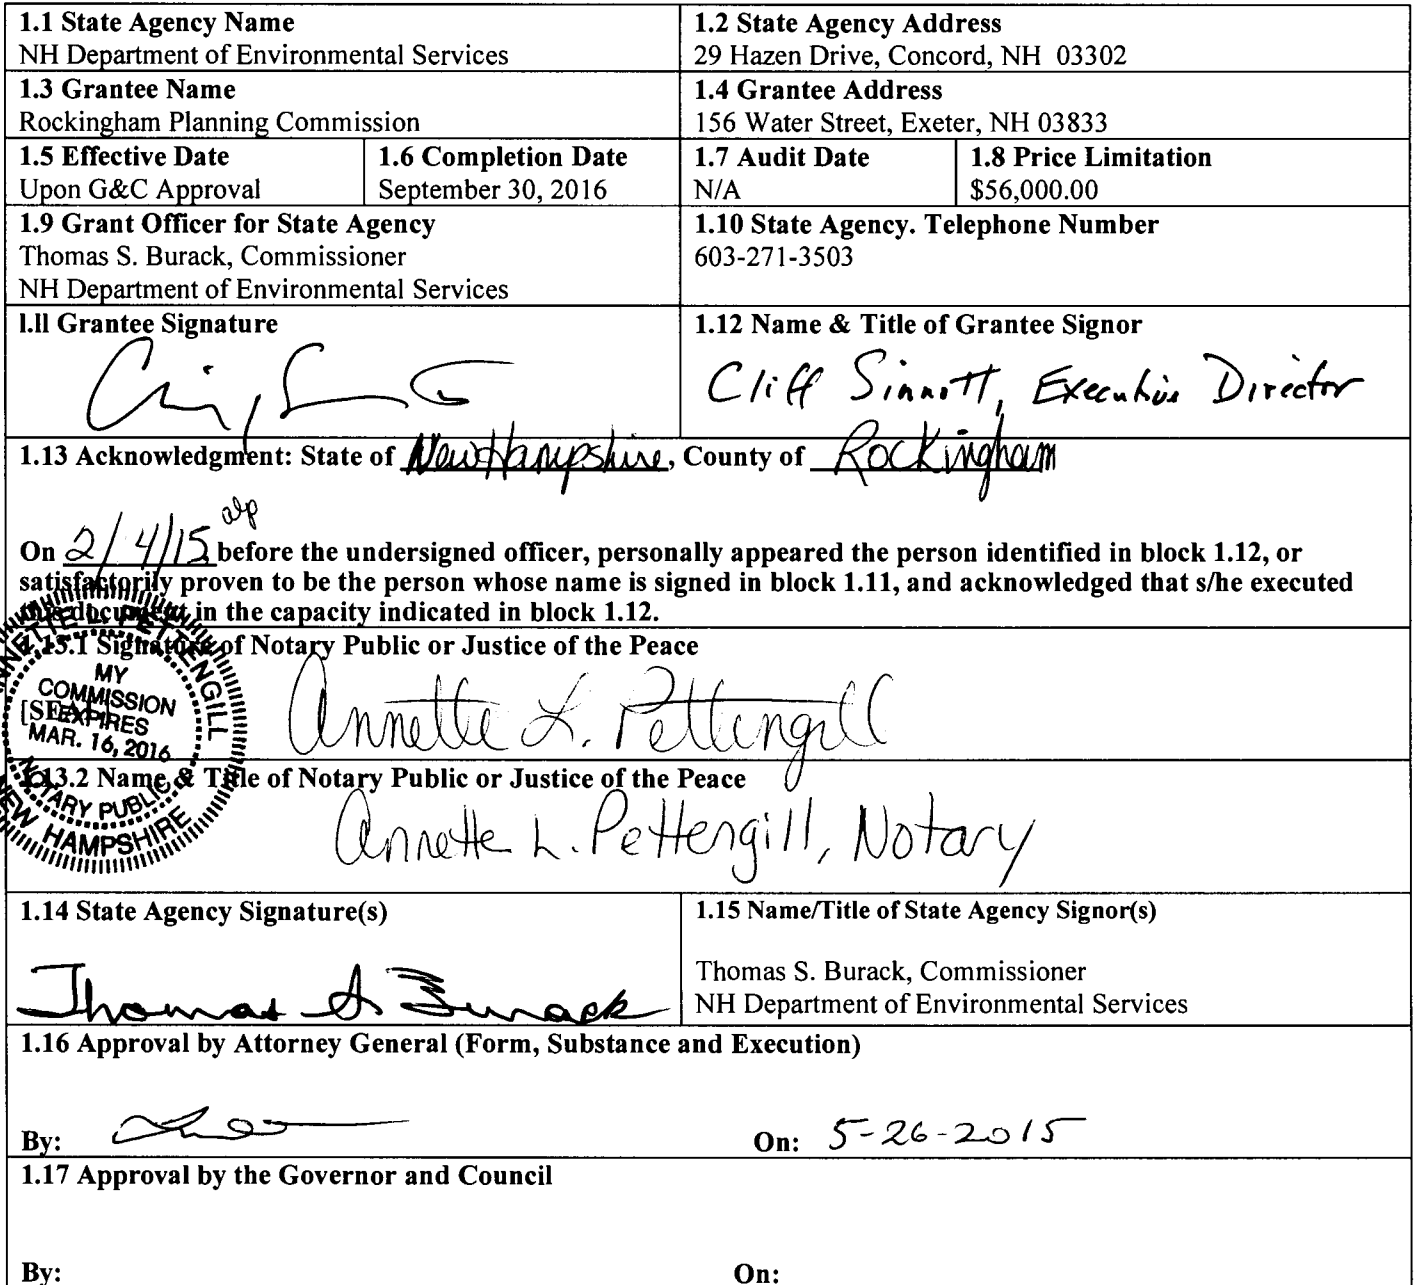 1.1 State Agency Name
NH Department of Environmental Services
1.2 State Agency Address
29 Hazen Drive, Concord, NH 03302
1.3 Grantee Name
Rockingham Planning Commission
1.4 Grantee Address
156 Water Street, Exeter, NH 03833
1.5 Effective Date
Upon G&C Approval
1.6 Completion Date
September 30, 2016
1.7 Audit Date
N/A
1.8 Price Limitation
$56,000.00
1.9 Grant Officer for State Agency
Thomas S. Burack, Commissioner
NH Department of Environmental Services
1.10 State Agency. Telephone Number
603-271-3503
l.ll Grantee Signature
1.12 Name & Title of Grantee Signor
Cliff Sinnott, Executive Director
1.13 Acknowledgment: State of New Hampshire, County of Rockingham
alp
On 2/4/15 before the undersigned officer, personally appeared the person identified in block 1.12, or
satisfactorily proven to be the person whose name is signed in block 1.11, and acknowledged that s/he executed
this document in the capacity indicated in block 1.12.
1.13.1 Signature of Notary Public or Justice of the Peace
Annette L. Pettengill
[SEAL]
ANNETTE L. PETTENGILL
MY
COMMISSION
EXPIRES
MAR. 16, 2016
NOTARY PUBLIC
NEW HAMPSHIRE
1.13.2 Name & Title of Notary Public or Justice of the Peace
Annette L. Pettengill, Notary
1.14 State Agency Signature(s)
Thomas S Burack
1.15 Name/Title of State Agency Signor(s)
Thomas S. Burack, Commissioner
NH Department of Environmental Services
1.16 Approval by Attorney General (Form, Substance and Execution)
By:
On: 5-26-2015
1.17 Approval by the Governor and Council
By:
On: